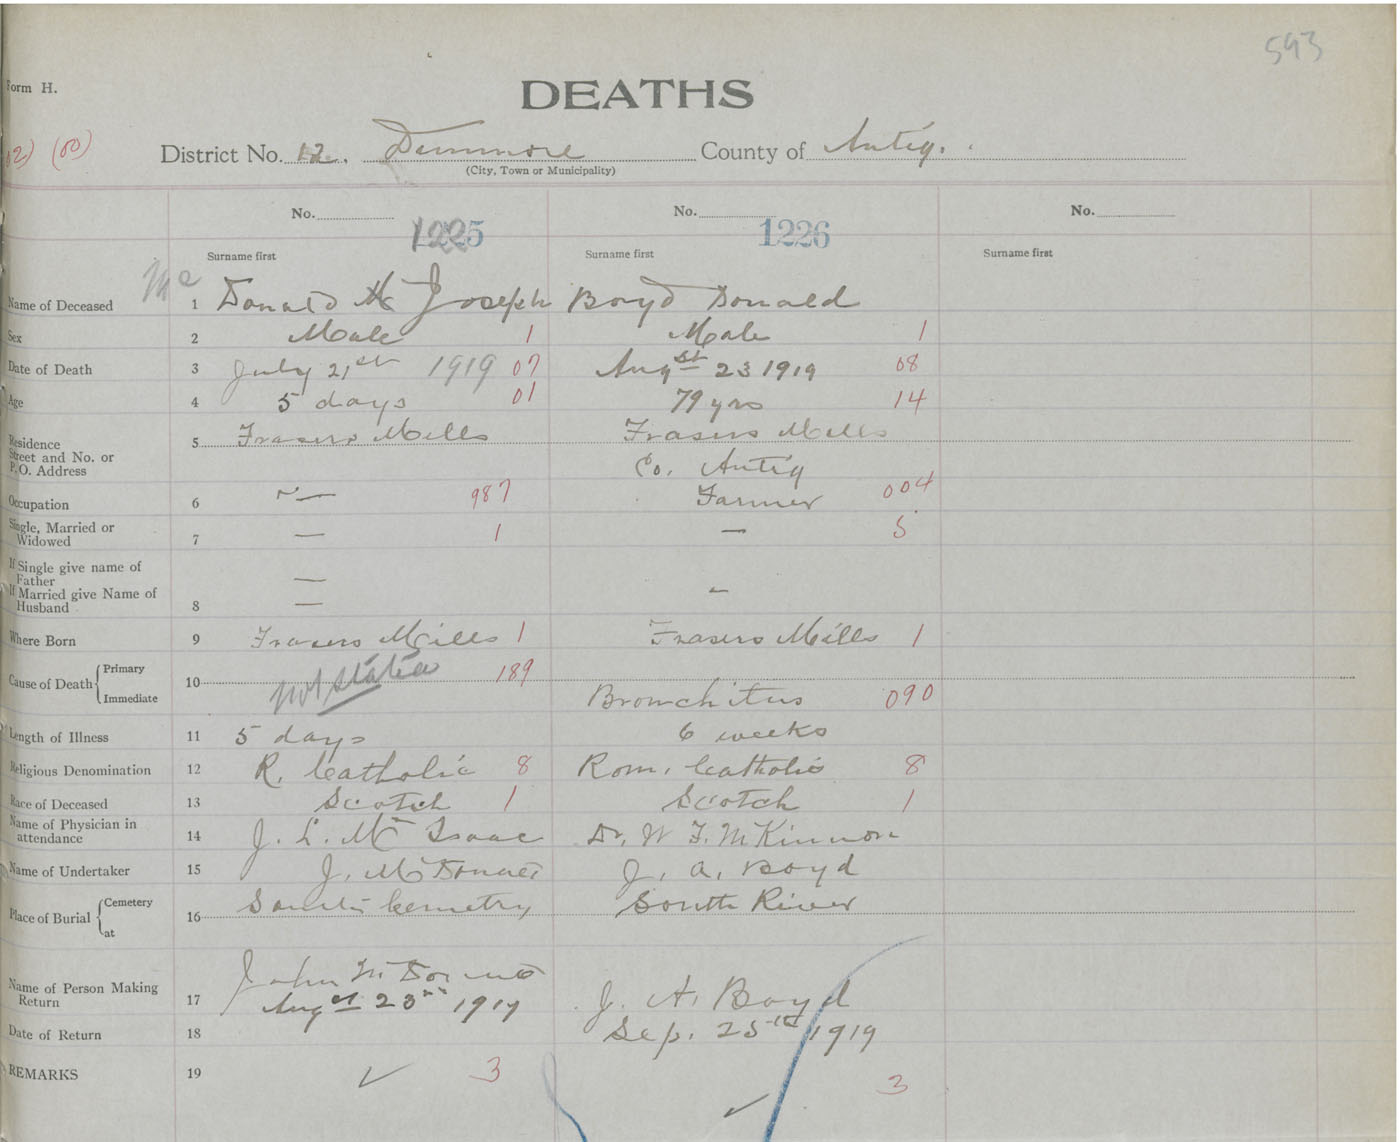 593
Form H.
DEATHS
(00)
District No. 12. Dunmore County of Antig.
(City, Town or Municipality)
No. No. No.
1225 1226
Surname first Surname first Surname first
Mc
Name of Deceased 1 Donald Joseph Boyd Donald
Sex 2 Male 1 Male 1
Date of Death 3 July 21st 1919 07 Augst 23 1919 08
Age 4 5 days 01 79 yrs 14
Residence
Street and No. or
P.O. Address 5 Frasers Mills Frasers Mills
Co. Antig
Occupation 6 — 987 Farmer 004
Single, Married or
Widowed 7 — 1 — 5
If Single give name of
Father —
If Married give Name of
Husband 8 — –
Where Born 9 Frasers Mills 1 Frasers Mills 1
Cause of Death { Primary
Immediate 10 not stated 189 Bronchitus 090
Length of Illness 11 5 days 6 weeks
Religious Denomination 12 R. Catholic 8 Rom. Catholic 8
Race of Deceased 13 Scotch 1 Scotch 1
Name of Physician in
attendance 14 J. L. Mc Isaac Dr. W F. McKinnon
Name of Undertaker 15 J. McDonald J. A. Boyd
Place of Burial { Cemetery
at 16 Cemetry South River
Name of Person Making
Return 17 John J. A. Boyd
Augst 23rd 1919
Date of Return 18 Sep. 25th 1919
REMARKS 19 ✓ 3 ✓ 3